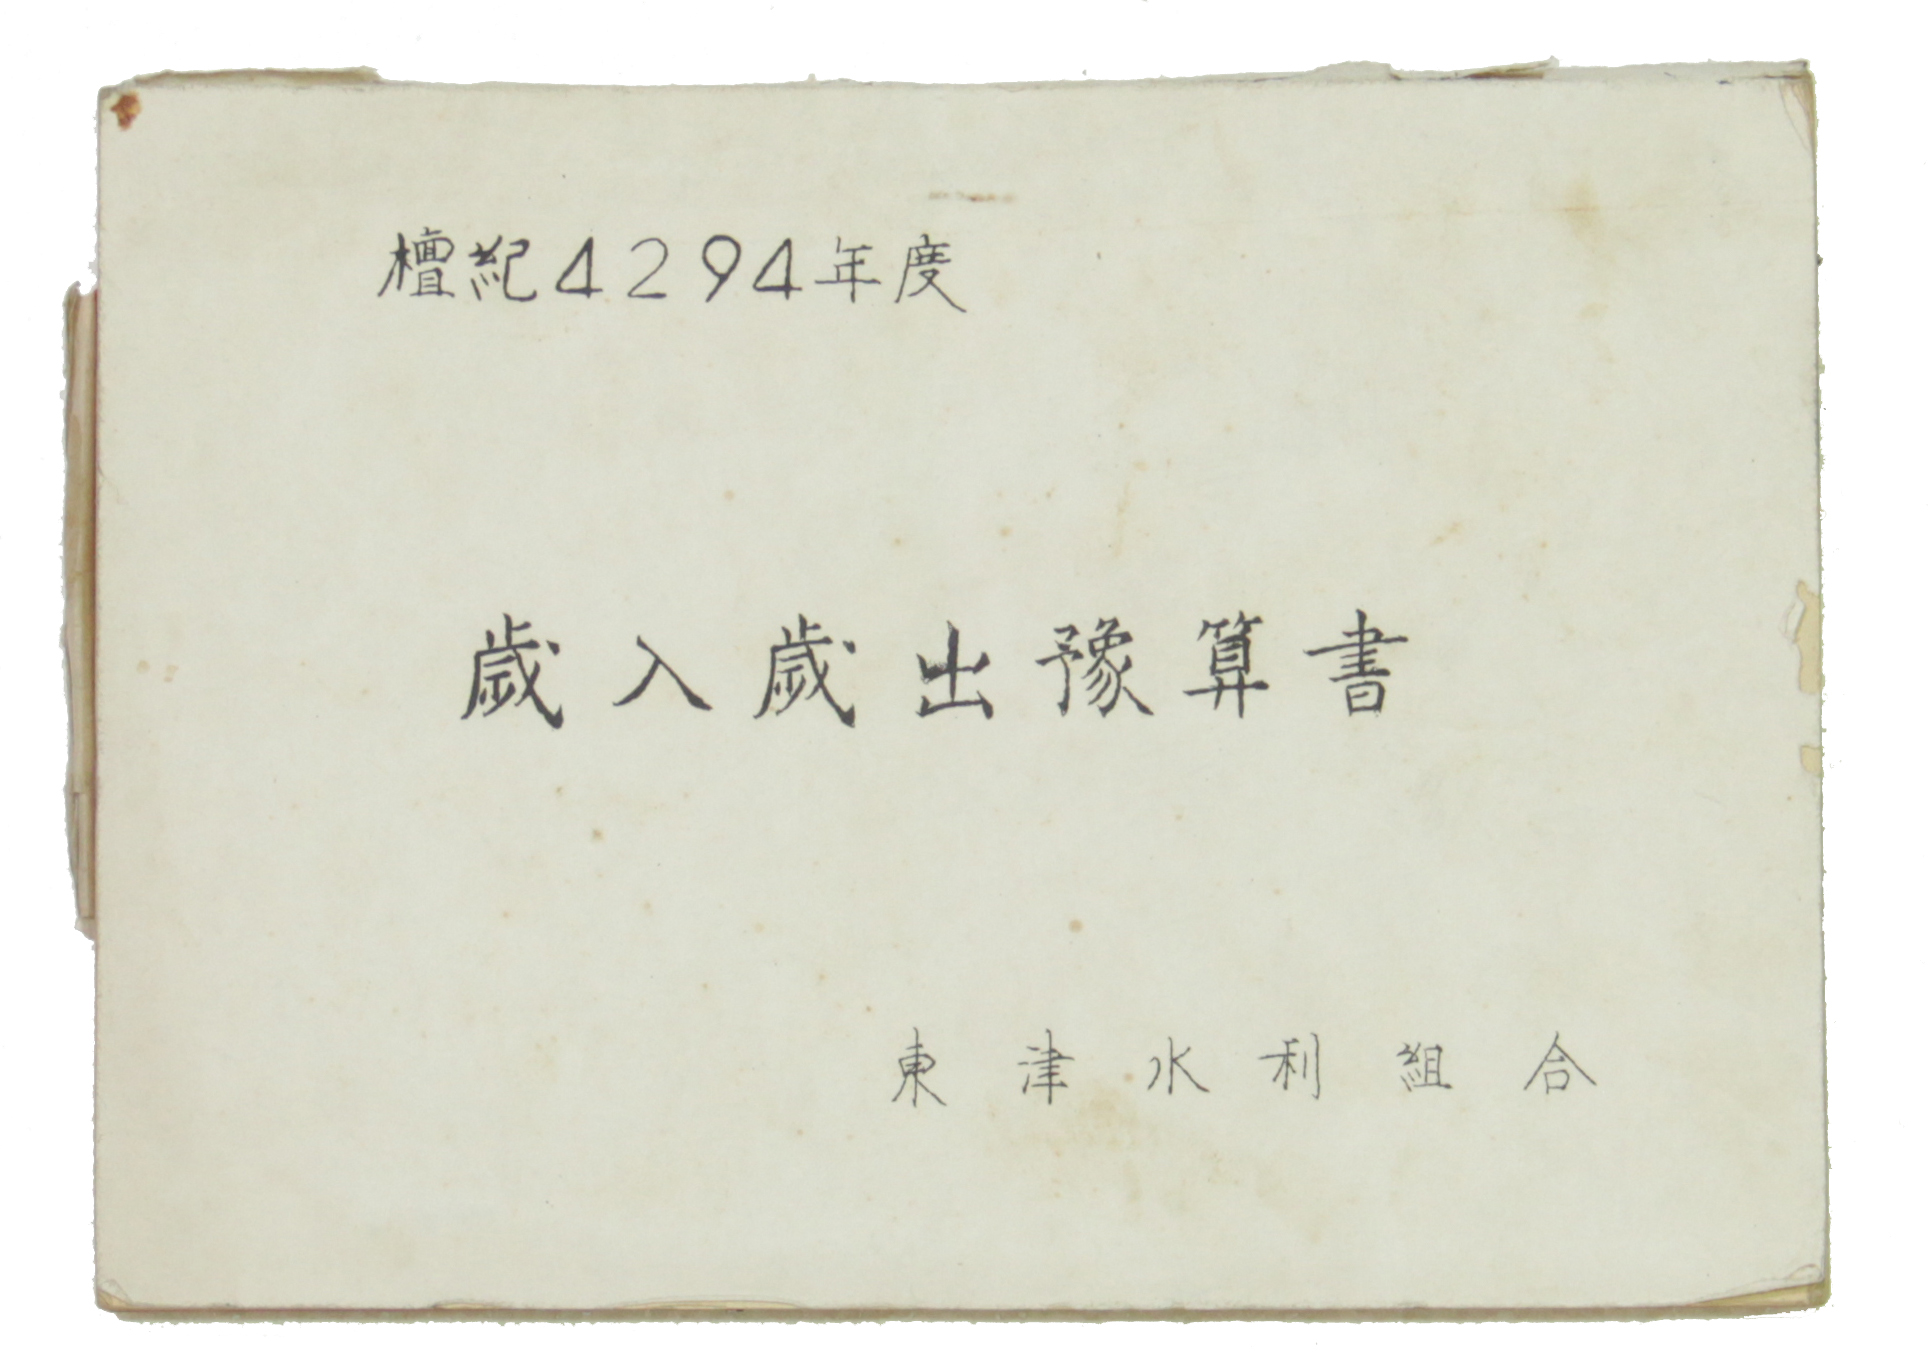 檀紀4294年度
歲入歲出豫算書
東津水利組合